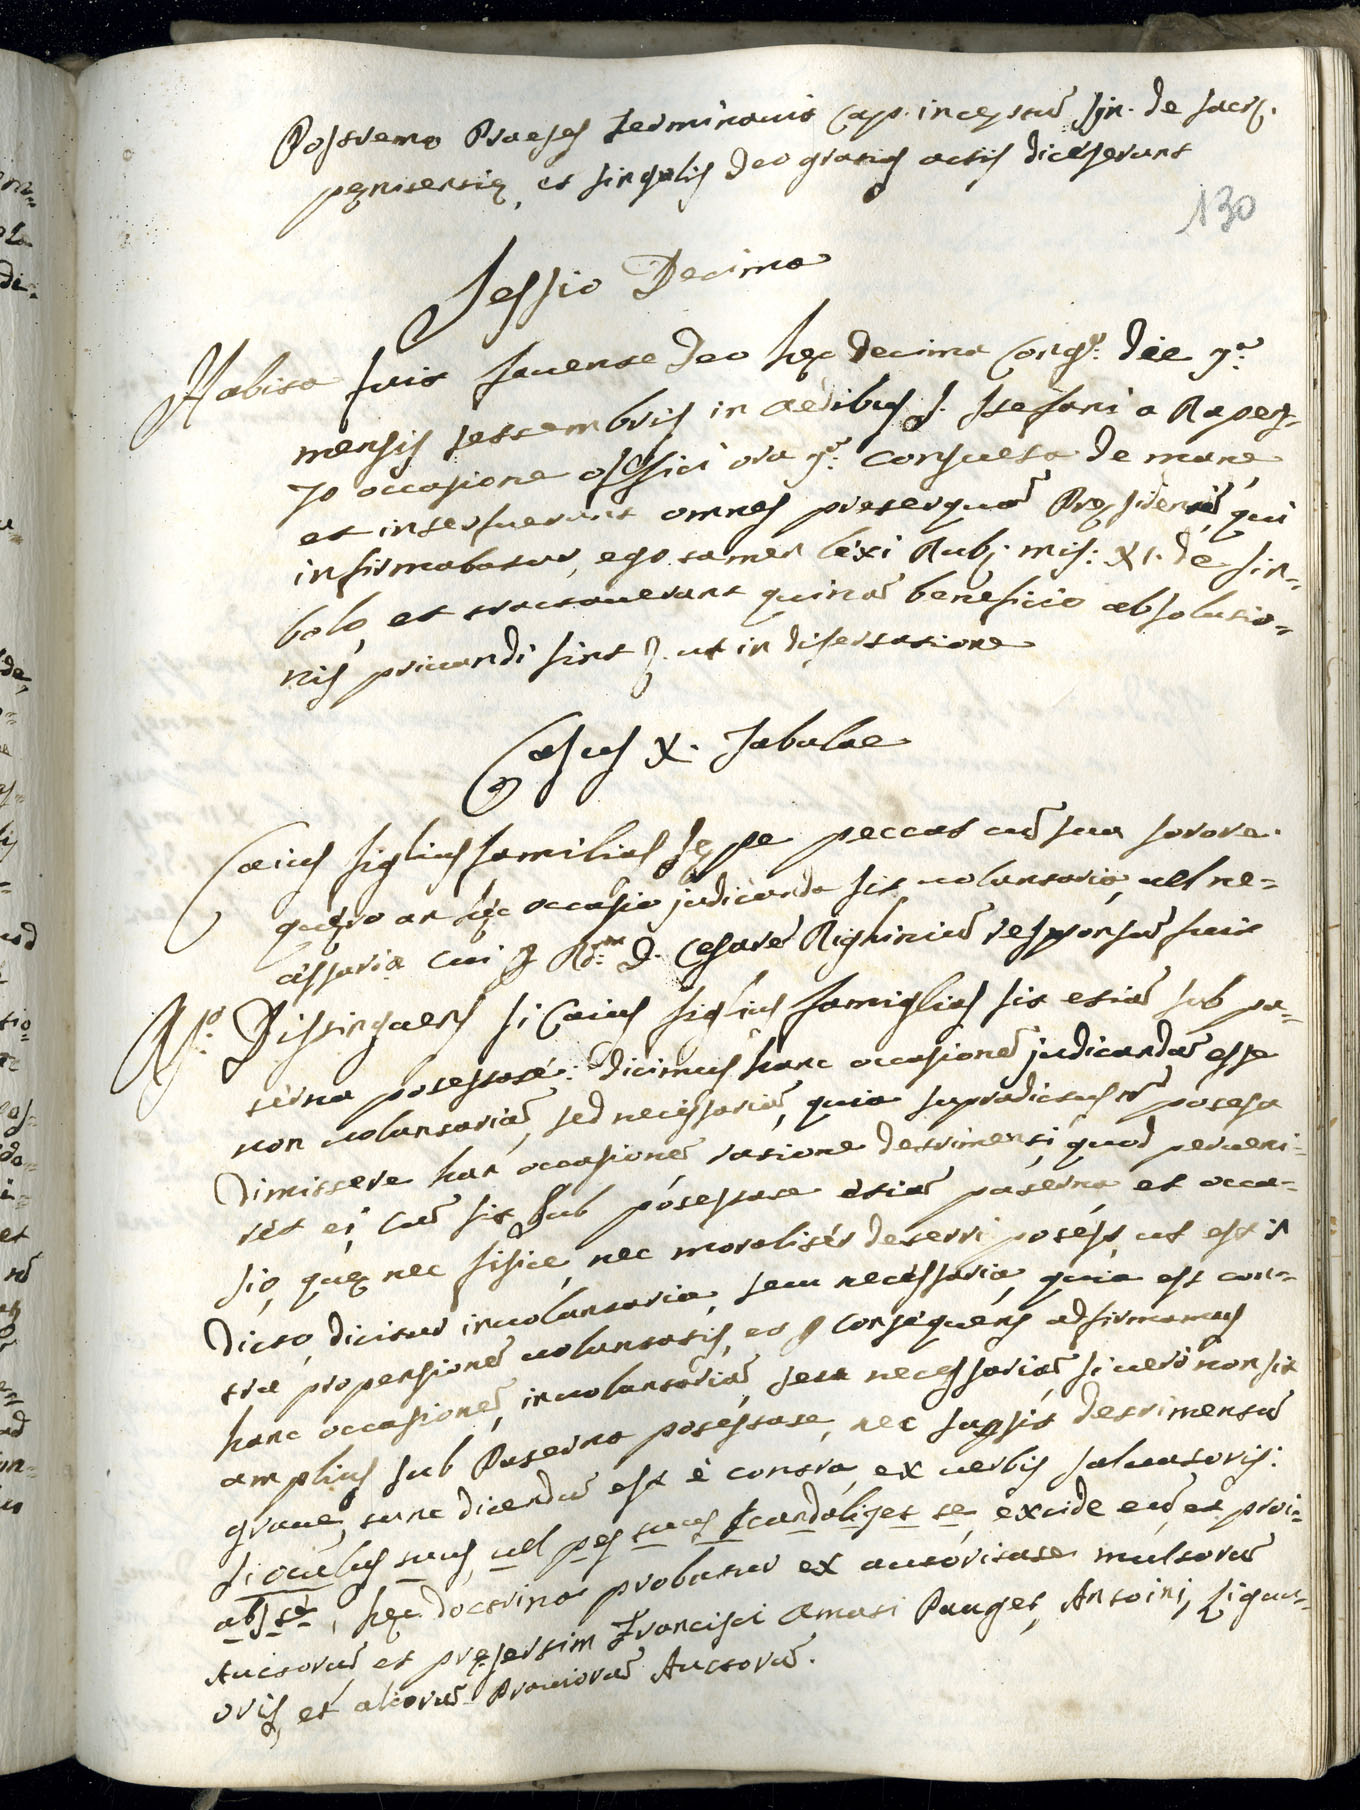 Postremo Praeses terminavit Cap. inceptũ Sÿn. de Sacr.
pęnitentię, et singulis Deo gratijs actis discęserunt
130
Sessio Decima
Habita fuit favente Deo hęc decima Congr: die 7ᵃ
mensis settembris in aedibus S. Stefani a
occasione offici ora 7ᵃ: consueta de mane
et interfuerunt omnes preterquã Pręsidentẽ, qui
infirmabatur, ego tamen lexi Rub: mis: XI. de sin=
bolo, et tractaverunt quinã beneficio absolutio=
nis privandi sint ut in disertatione
Casus X. tabulae
Caius figlius familias sępe peccat cũ sua sorore.
quęro an hęc occasio judicanda sit voluntaria, vel ne=
cessaria cui Rᵐ D. Cesarẽ Righiniũ responsũ fuit
Rº: Distinguens si Caius figlius famiglias sit etiã sub pa=
terna potestate: dicimus hanc occasionẽ judicandã esse
non voluntariã, sed necessariã, quia supradictus nõ potest
dimittere hanc occasionẽ ratione detrimenti, quod perveni=
ret ei, cũ sit sub potestate etiã paterna et occa=
sio, quę nec fisice, nec moraliter deserri potest, ut est in
dicto, dicitur involuntaria, seu necessaria, quia est con=
tra propensionẽ voluntatis, et consequens adfirmamus
hanc occasionẽ, involuntariã, seu necessariã, si verò non sit
amplius sub Paterna potestate, nec supsit detrimentũ
grave, tunc dicendũ est è contra, ex verbis salvatoris:
si oculus tuus, vel pes tuus scandalizet te excide eũ, et proi=
abs te, hęc doctrina probatur ex autoritate multorũ
Auctorũ, et pręsertim Francisci Amati Pouget, Antoini, Liguu=
oris, et aliorũ Proviorũ Auctorũ.